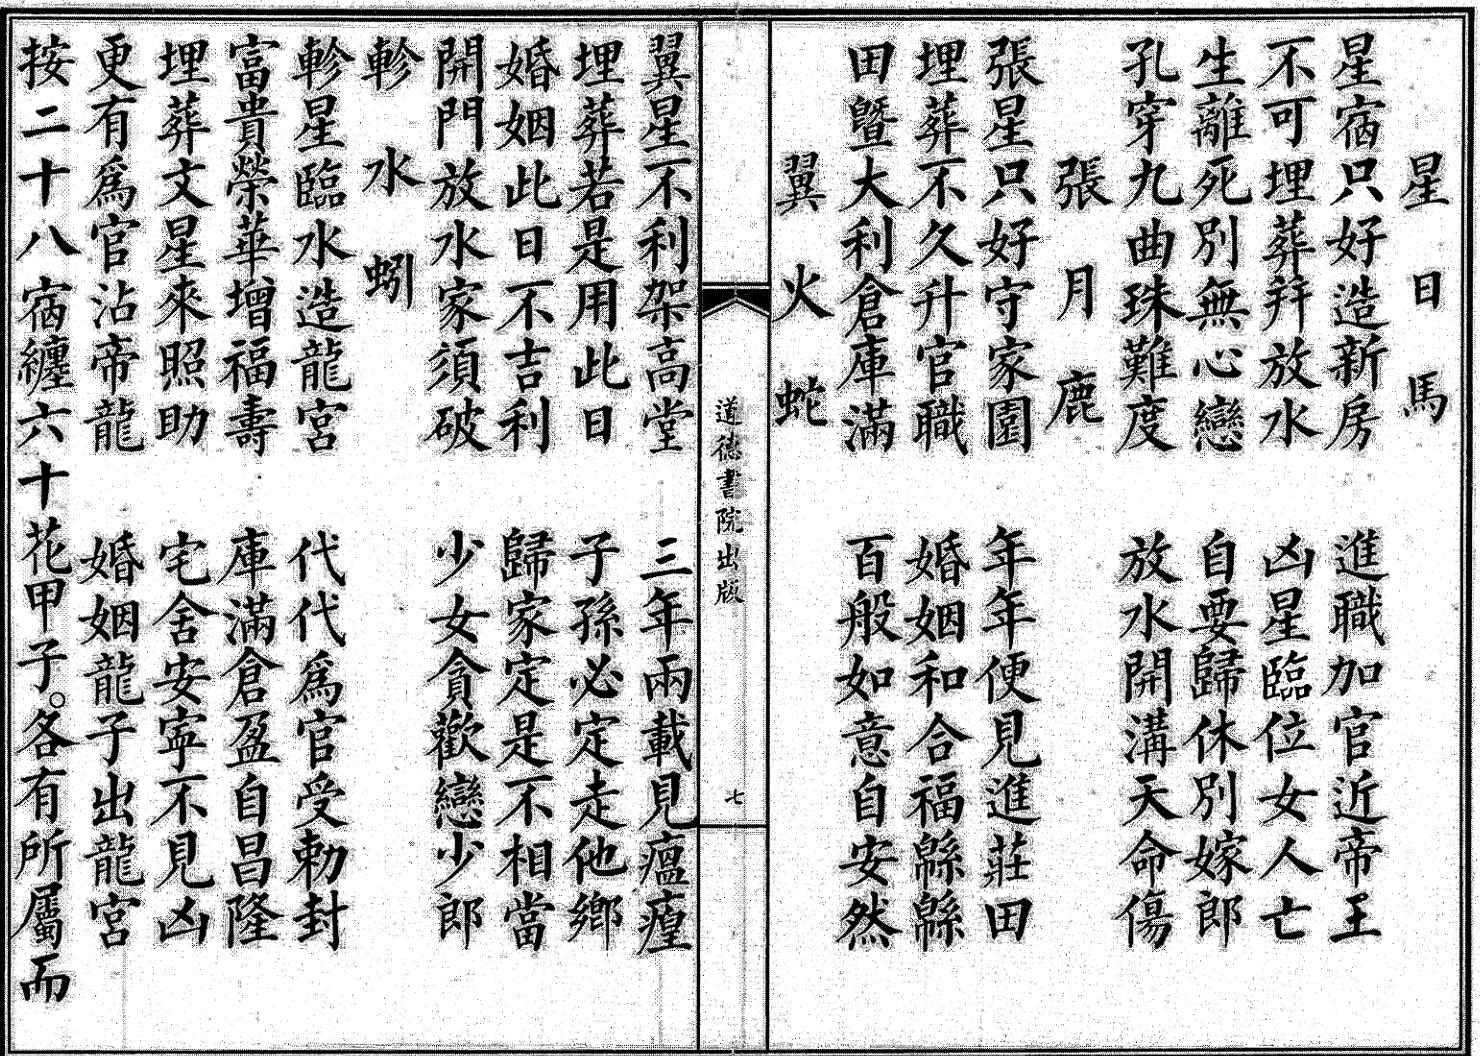 星日馬
星宿只好造新房　進職加官近帝王
不可埋葬幷放水　凶星臨位女人亡
生離死別無心戀　自要歸休別嫁郎
孔穿九曲珠難度　放水開溝天命傷
張月鹿
張星只好守家園　年年便見進莊田
埋葬不久升官職　婚姻和合福緜緜
田曁大利倉庫滿　百般如意自安然
翼火蛇
道德書院出版
七
翼星不利架高堂　三年兩載見瘟㾮
埋葬若是用此日　子孫必定走他鄉
婚姻此日不吉利　歸家定是不相當
開門放水家須破　少女貪歡戀少郎
軫水蚓
軫星臨水造龍宮　代代爲官受勅封
富貴榮華增福壽　庫滿倉盈自昌隆
埋葬文星來照助　宅舍安寧不見凶
更有爲官沾帝龍　婚姻龍子出龍宮
按二十八宿纏六十花甲子。各有所屬而